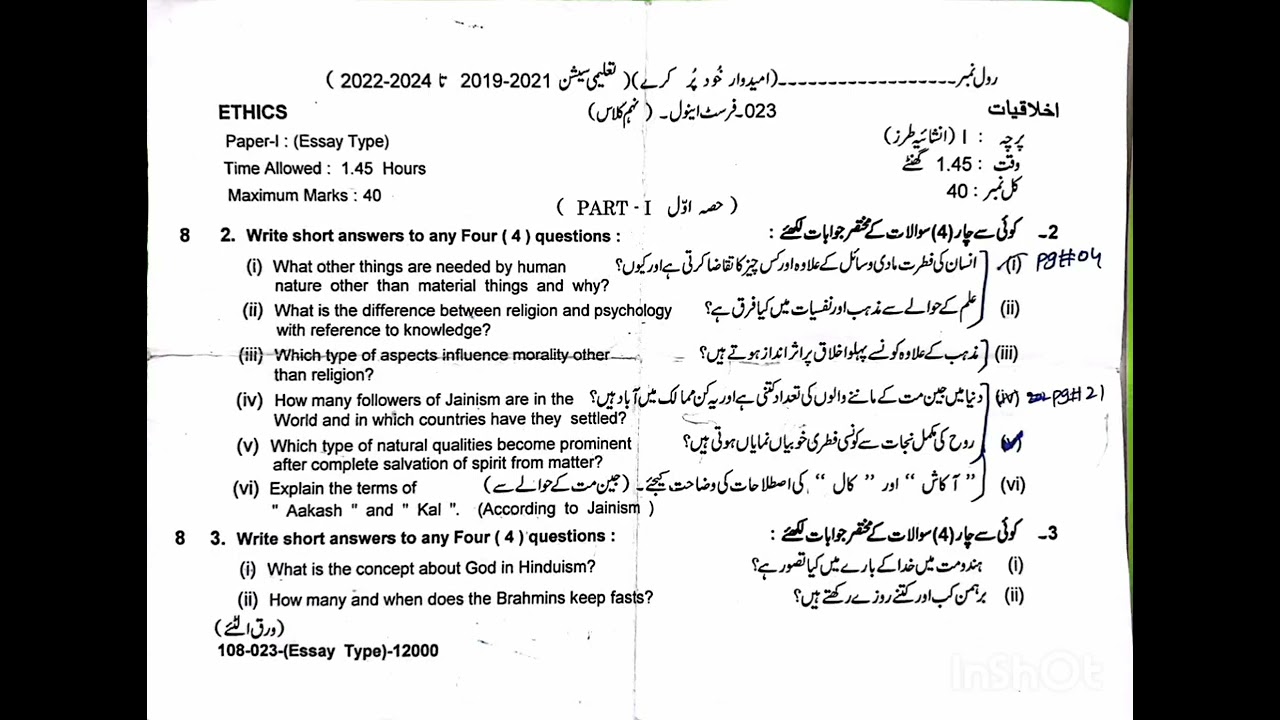 رول نمبر ------------------(امیدوار خود پُر کرے)( تعلیمی سیشن 2021-2019 تا 2024-2022 )
ETHICS 023۔فرسٹ اینول۔ (نہم کلاس) اخلاقیات
Paper-I : (Essay Type) پرچہ : I (انشائیہ طرز)
Time Allowed : 1.45 Hours وقت : 1.45 گھنٹے
Maximum Marks : 40 کل نمبر : 40
( PART - I حصہ اوّل )
8 2. Write short answers to any Four ( 4 ) questions : 2- کوئی سے چار (4) سوالات کے مختصر جوابات لکھئے :
(i) What other things are needed by human (i) انسان کی فطرت مادی وسائل کے علاوہ اور کس چیز کا تقاضا کرتی ہے اور کیوں؟ pg#04
nature other than material things and why?
(ii) What is the difference between religion and psychology (ii) علم کے حوالے سے مذہب اور نفسیات میں کیا فرق ہے؟
with reference to knowledge?
(iii) Which type of aspects influence morality other (iii) مذہب کے علاوہ کونسے پہلو اخلاق پر اثر انداز ہوتے ہیں؟
than religion?
(iv) How many followers of Jainism are in the (iv) دنیا میں جین مت کے ماننے والوں کی تعداد کتنی ہے اور یہ کن ممالک میں آباد ہیں؟ pg#21
World and in which countries have they settled?
(v) Which type of natural qualities become prominent (v) روح کی مکمل نجات سے کونسی فطری خوبیاں نمایاں ہوتی ہیں؟
after complete salvation of spirit from matter?
(vi) Explain the terms of (vi) "آکاش" اور "کال" کی اصطلاحات کی وضاحت کیجئے۔ (جین مت کے حوالے سے)
" Aakash " and " Kal ". (According to Jainism )
8 3. Write short answers to any Four ( 4 ) questions : 3- کوئی سے چار (4) سوالات کے مختصر جوابات لکھئے :
(i) What is the concept about God in Hinduism? (i) ہندومت میں خدا کے بارے میں کیا تصور ہے؟
(ii) How many and when does the Brahmins keep fasts? (ii) برہمن کب اور کتنے روزے رکھتے ہیں؟
(ورق الٹئے)
108-023-(Essay Type)-12000
InShOt